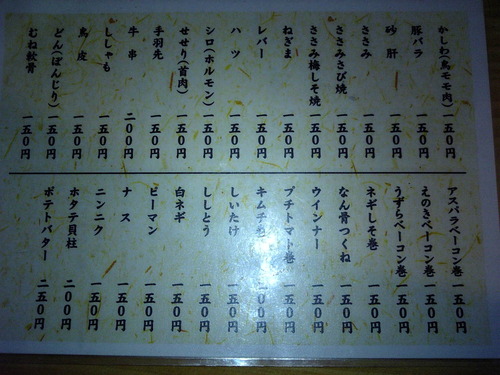 かしわ(鳥モモ肉) 一五0円
豚バラ 一五0円
砂肝 一五0円
ささみ 一五0円
ささみさび焼 一五0円
ささみ梅しそ焼 一五0円
ねぎま 一五0円
レバー 一五0円
ハツ 一五0円
シロ(ホルモン) 一五0円
せせり(首肉) 一五0円
手羽先 一五0円
牛串 二00円
ししゃも 一五0円
鳥皮 一五0円
どん(ぼんじり) 一五0円
むね軟骨 一五0円
アスパラベーコン巻 一五0円
えのきベーコン巻 一五0円
うずらベーコン巻 一五0円
ネギしそ巻 一五0円
なん骨つくね 一五0円
ウインナー 一五0円
プチトマト巻 一五0円
キムチ 00円
しいたけ 一五0円
ししとう 一五0円
白ネギ 一五0円
ピーマン 一五0円
ナス 一五0円
ニンニク 一五0円
ホタテ貝柱 二00円
ポテトバター 二五0円